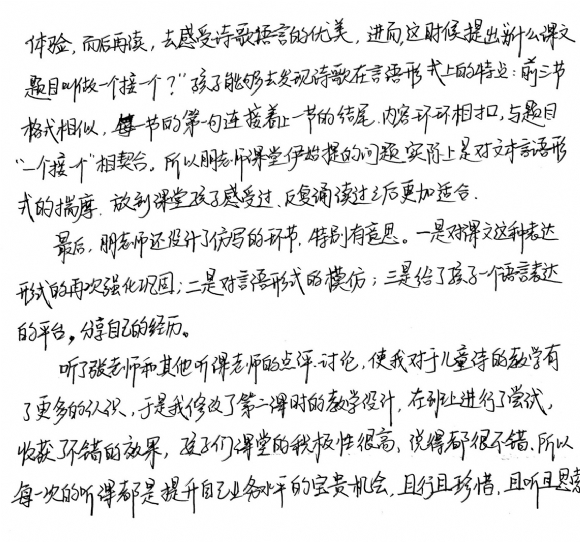 体验，而后再读，去感受诗歌语言的优美，进而，这时候提出"为什么课文
题目叫做一个接一个？"孩子能够去发现诗歌在言语形式上的特点：前三节
格式相似，每一节的第一句连接着上一节的结尾，内容环环相扣，与题目
"一个接一个"相契合。所以朋老师课堂伊始提的问题实际上是对文本言语形
式的揣摩，放到课堂孩子感受过、反复诵读过之后更加适合。
最后，朋老师还设计了仿写的环节，特别有意思。一是对课文这种表达
形式的再次强化巩固；二是对言语形式的模仿；三是给了孩子一个语言表达
的平台，分享自己的经历。
听了张老师和其他听课老师的点评、讨论，使我对于儿童诗的教学有
了更多的认识，于是我修改了第二课时的教学设计，在班上进行了尝试，
收获了不错的效果，孩子们课堂的积极性很高，说得都很不错，所以
每一次的听课都是提升自己业务水平的宝贵机会，且行且珍惜，且听且思索